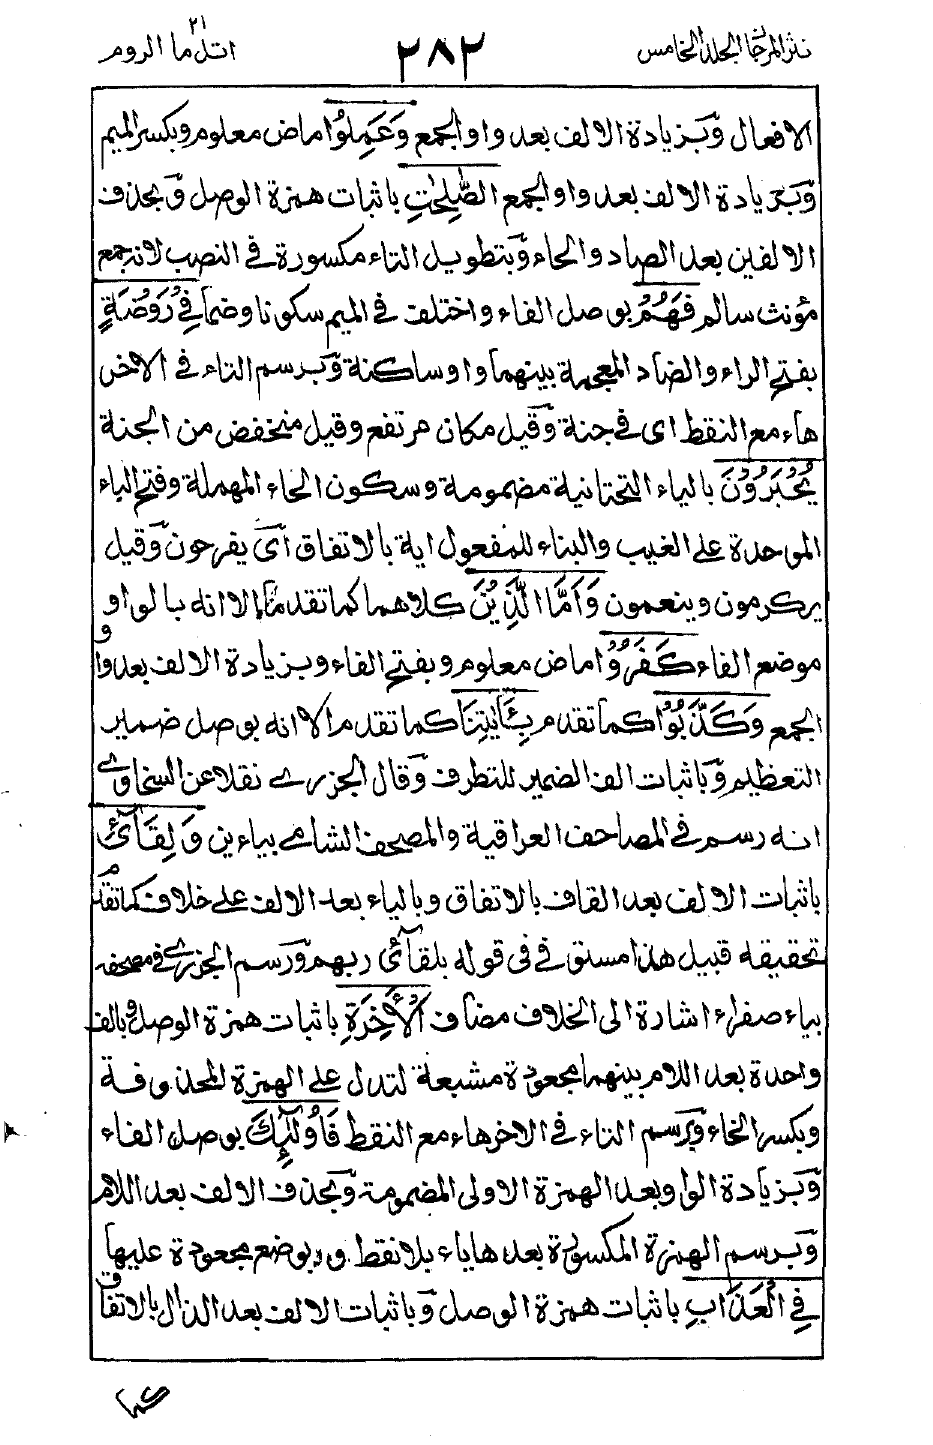 نثر المرجان المجلد الخامس ٢٨٢ اتل ما ٢١ الروم
الافعال وبزيادة الالف بعد واو الجمع وَعَمِلُوا ماض معلوم وبكسر الميم
وبزيادة الالف بعد واو الجمع الصّٰلِحٰتِ باثبات همزة الوصل وبحذف
الالفين بعد الصاد والحاء وبتطويل التاء مكسورة في النصب لانه جمع
مؤنث سالم فَهُمْ بوصل الفاء واختلف في الميم سكونا وضما فِيْ رَوْضَةٍ
بفتح الراء والضاد المعجمة بينهما واو ساكنة وبرسم التاء في الآخر
هاء مع النقط اى في جنة وقيل مكان مرتفع وقيل منخفض من الجنة
يُّحْبَرُوْنَ بالياء التحتانية مضمومة وسكون الحاء المهملة وفتح الباء
الموحدة على الغيب والبناء للمفعول اية بالاتفاق اى يفرحون وقيل
يكرمون وينعمون وَاَمَّا الَّذِيْنَ كلاهما كما تقدما الا انه بالواو
موضع الفاء كَفَرُوْا ماض معلوم وبفتح الفاء وبزيادة الالف بعد واو
الجمع وَكَذَّبُوْا كما تقدم بِـَٔايٰتِنَا كما تقدم الا انه بوصل ضمير
التعظيم وباثبات الف الضمير للتطرف وقال الجزري نقلا عن السخاوي
انه رسم في المصاحف العراقية والمصحف الشامي بياءين وَلِقَآئِ
باثبات الالف بعد القاف بالاتفاق وبالياء بعد الالف على خلاف كما تقدم
تحقيقه قبيل هذا مستوفى في قوله بلقآئ ربهم ورسم الجزري في مصحفه
بياء صفراء اشارة الى الخلاف مضاف الْاٰخِرَةِ باثبات همزة الوصل وبالف
واحدة بعد اللام بينهما مجعودة مشبعة لتدل على الهمزة المحذوفة
وبكسر الخاء وبرسم التاء في الآخر هاء مع النقط فَاُولٰٓئِكَ بوصل الفاء
وبزيادة الواو بعد الهمزة الاولى المضمومة وبحذف الالف بعد اللام
وبرسم الهمزة المكسورة بعدها ياء بلا نقط وبوضع مجعودة عليها
فِي الْعَذَابِ باثبات همزة الوصل وباثبات الالف بعد الذال بالاتفاق